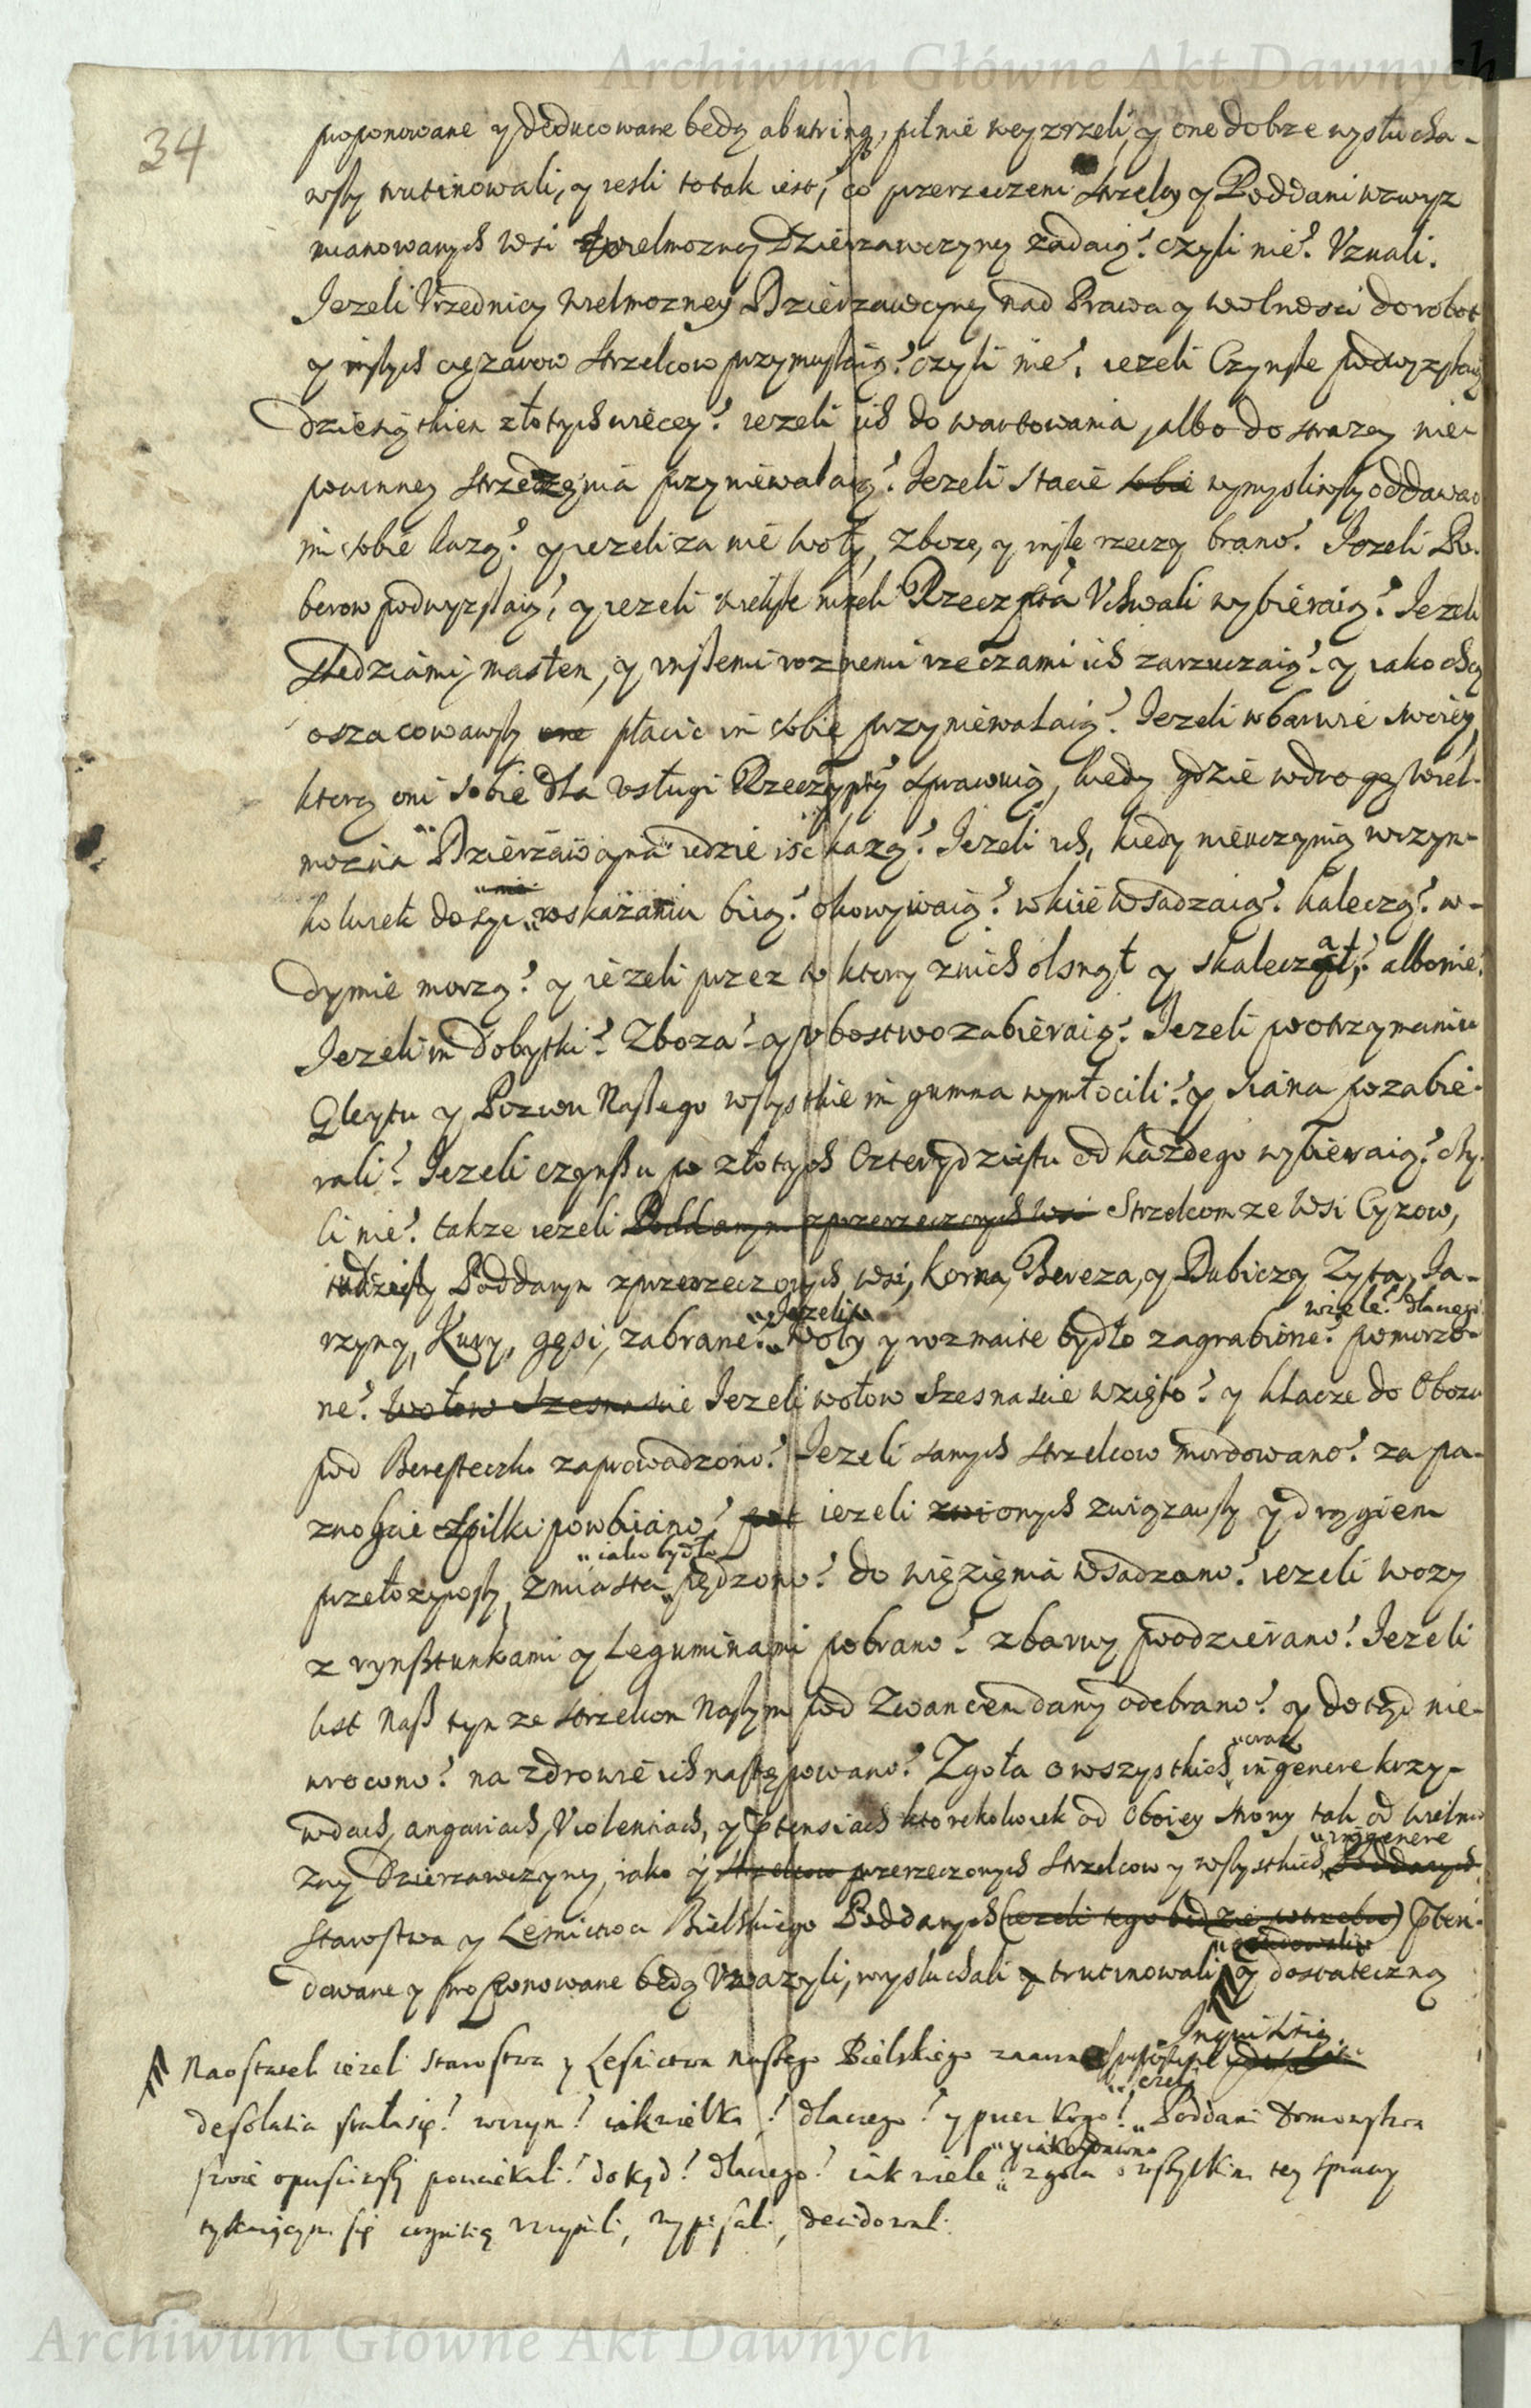 Archiwum Główne Akt Dawnych
34
proponowane y deducowane będą ab utrinq, pilnie weyzrzeli, y one dobrze wysłucha-
wszy trutinowali, y iesli to tak iest, co przerzeczeni Strzelcy y Poddani wzwyz
mianowanych wsi Wielmozney Dzierzawczyney zadaią? czyli nie? Uznali.
Jezeli Urzednicy Wielmozney Dzierzawczyney nad Prawa y wolnosci do robot
y inszych cięzarow Strzelcow przymuszaią? czyli nie? iezeli Czynsze podwyzszaią
dziesiątkiem złotych więcey? iezeli ich do wartowania, albo do strazey nie-
powinney strzezenia przyniewalaią? Jezeli Stacie wymysliwszy oddawac
im sobie kazą? y iezeli za nie woły, zboze, y insze rzeczy brano? Jezeli Po-
borow podwyzszaią, y iezeli większe nizeli Rzeczpta Uchwali wybieraią? Jezeli
Sledziami, masłem, y inszemi roznemi rzeczami ich zarzucaią? y iako chcą
oszacowawszy płacic im sobie przyniewalaią? Jezeli w barwie swoiey,
ktorą oni sobie dla usługi Rzeczyptey sprawuią, kiedy gdzie w drogę Wiel-
mozna Dzierzawczyna iedzie isc kazą? Jezeli ich, kiedy nieuczynią w czym-
kolwiek dosyc roskazaniu biią? okowywaią? w kuie wsadzaią? kaleczą? w-
dymie morzą? y iezeli przez to ktory z nich olsnął y skaleczał? albo nie?
Jezeli im dobytki? Zboza? y ubostwo zabieraią? Jezeli po otrzymaniu
Gleytu y Pozwu Naszego wszystkie im gumna wymłocili? y siana pozabie-
rali? Jezeli czynszu po złotych Czterydziestu od kazdego wybieraią? czy-
li nie? takze iezeli Poddanym z przerzeczonych wsi Strzelcom ze Wsi Cyzow,
tudziesz Poddanym z przerzeczonych wsi, Korna, Bereza, y Dubiczy Zyta, Ja-
rzyny, Kury, gęsi, zabrane?
Jezeli
woły y rozmaite bydło zagrabione?
wiele? dlaczego
pomorzo-
ne? wołow Szesnascie Jezeli wołow Szesnascie wzięto? y klacze do Obozu
pod Beresteczko zaprowadzono? Jezeli samych strzelcow mordowano? za pa-
znogcie szpilki powbiiano? iezeli onych związawszy y drągiem
przełozywszy, z miasta
iako bydło
pędzono? do więzienia wsadzono? iezeli wozy
z rynsztunkami y Leguminami pobrano? z barwy poodzierano? Jezeli
list Nasz tym ze strzelcom Naszym pod Zwancem dany odebrano? y dotąd nie-
wrocono? na zdrowie ich następowano? Zgoła o wszystkich in genere krzy-
wdach, angariach, Violentiach, y ptensiach ktorekolwiek od Oboiey strony tak od Wielmo
zney Dzierzawczyney, iako y Strzelcow przerzeczonych Strzelcow y wszystkich
in genere
Poddanych
Starostwa y Lesnictwa Bielskiego Poddanych (iezeli tego będzie potrzeba) pten-
dowane y proponowane będą Uwazyli, wysłuchali y trutinowali, y dostateczną
Inquisitią
Naostatek iezeli Starostwa y Lesnictwa Naszego Bielskiego znaczna
desolatia stała się? w czym? iak wielka? dlaczego? y przez kogo?
iezeli
Poddani Domowstwa
swoie opusciwszy pouciekali? dokąd? dlaczego? iak wiele?
y iako dawno
zgoła o wszytkim tey sprawy
tykaiącym się cognitią uczynili, wypisali, decidowali.
Archiwum Główne Akt Dawnych